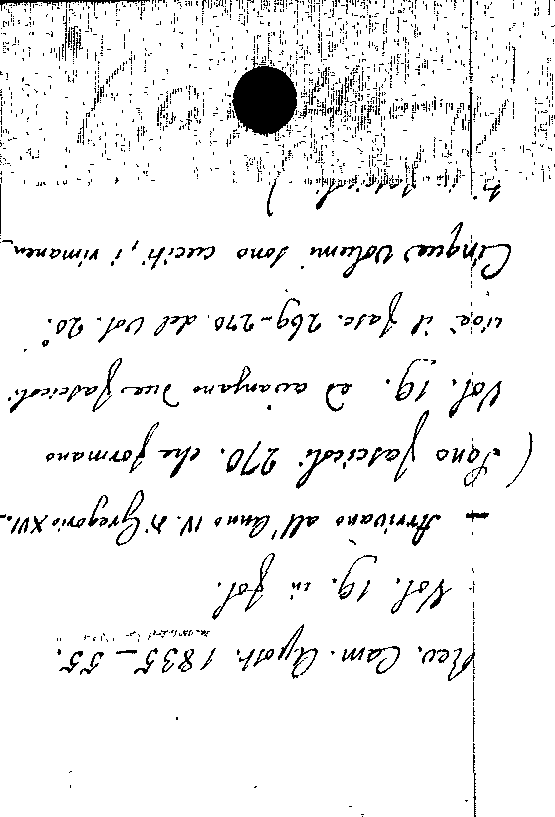 Rev. Cam. Apost. 1835_55.
Vol. 19. in fol.
— Arrivano all'Anno IV. di Gregorio XVI._
(Sono fascicoli 270. che formano
Vol. 19. ed avanzano due fascicoli
cioè il fasc. 269-270 del Vol. 20.°
Cinque Volumi sono cuciti, i rimanen_
ti in fascicoli)